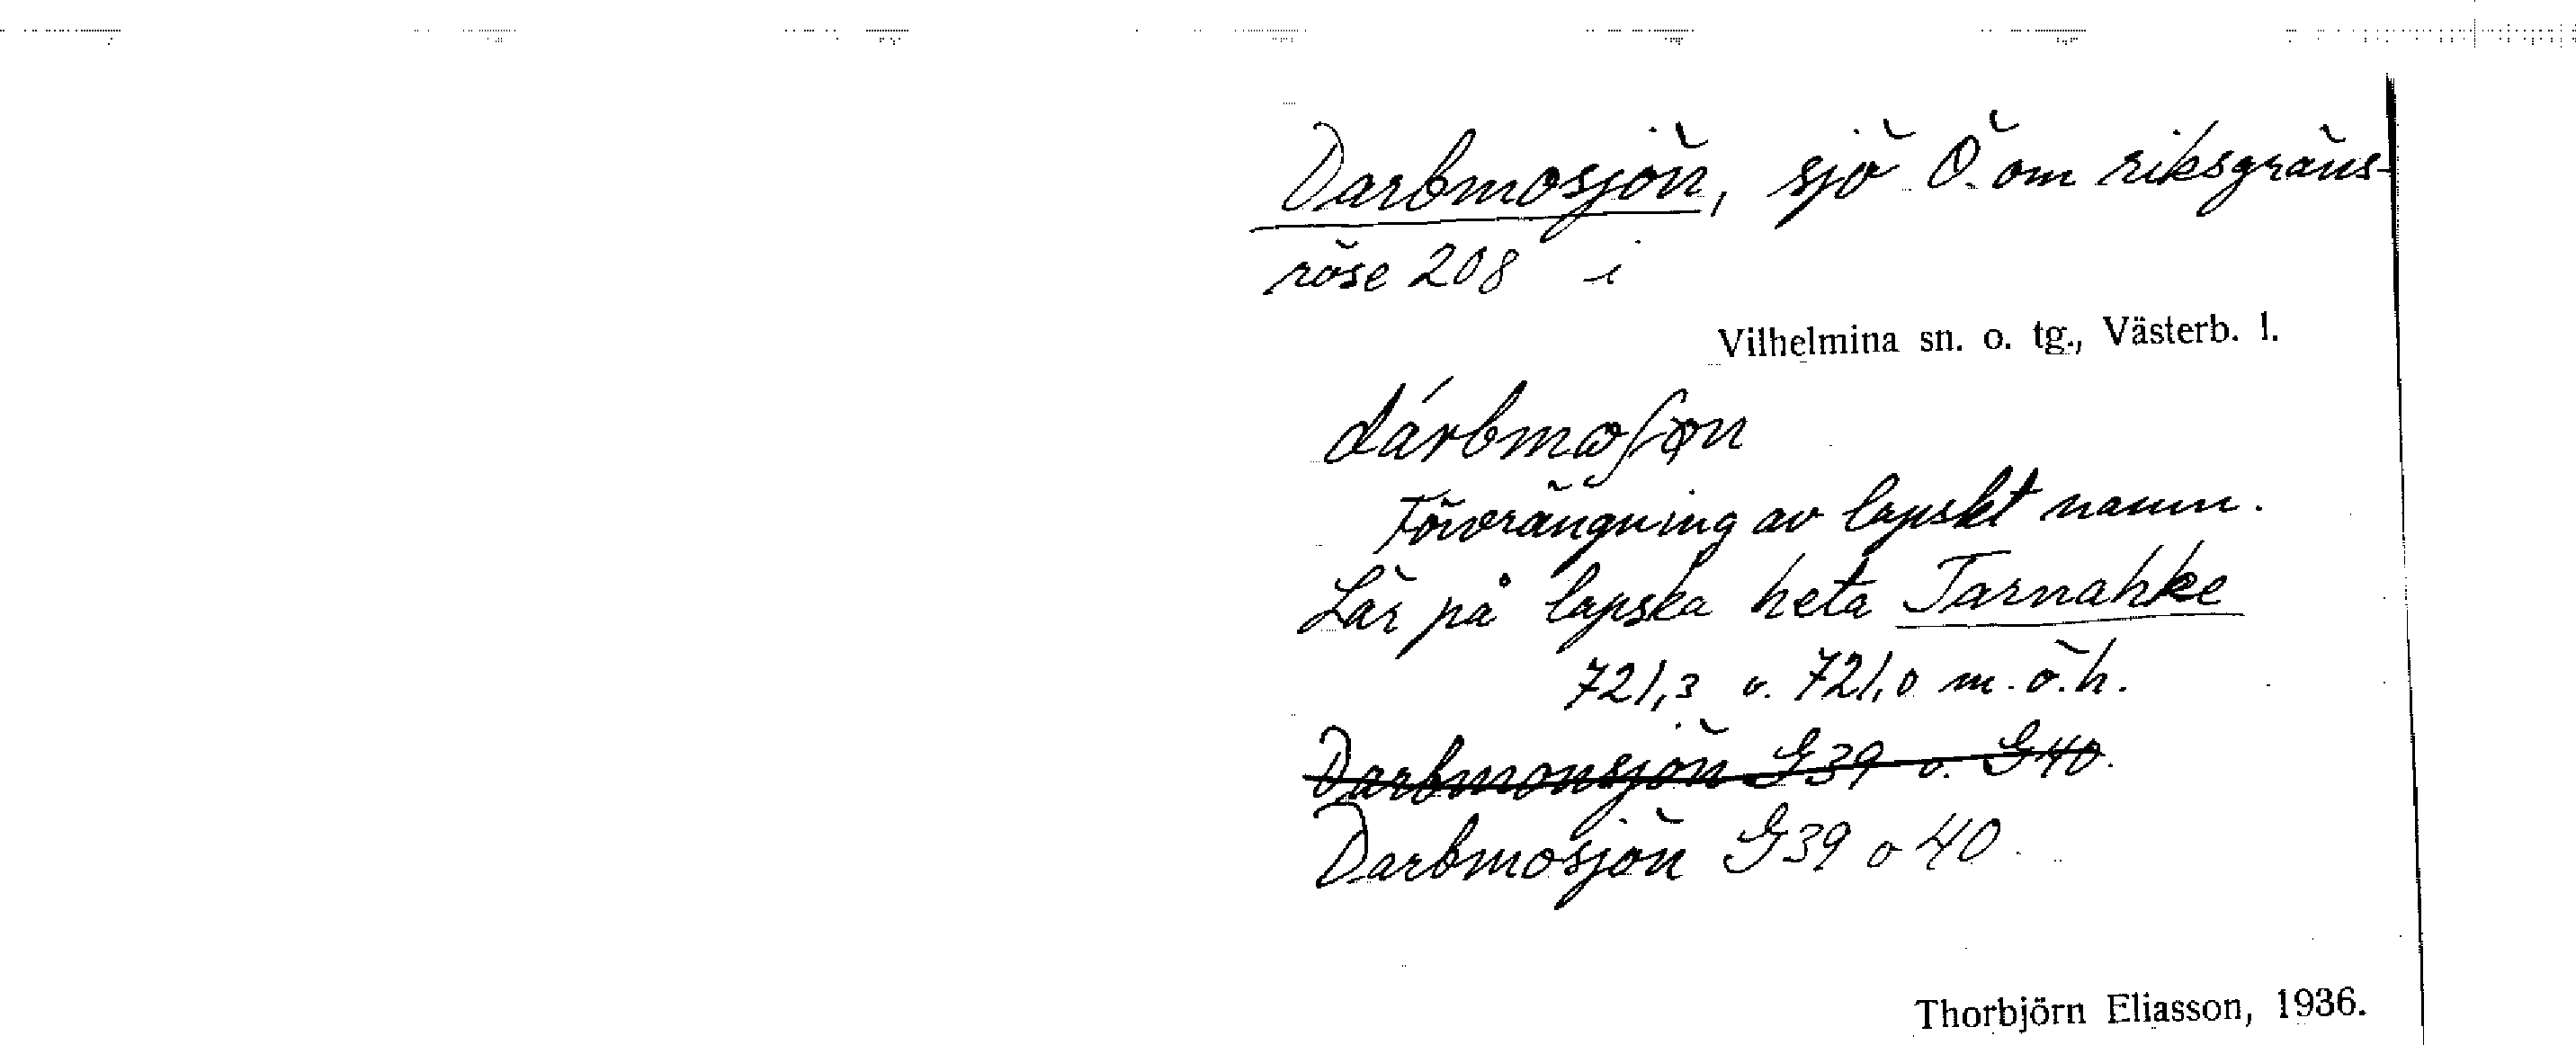 Darbmosjön, sjö Ö. om riksgräns-
röse 208 i
Vilhelmina sn. o. tg., Västerb. l.
dárbmoʃøn
Förvrängning av lapskt namn.
Lär på lapska heta Tarnahke
721,3 o. 721,0 m. ö. h.
Darbmonsjön G39 o. G40.
Darbmosjön G39 o 40
Thorbjörn Eliasson, 1936.